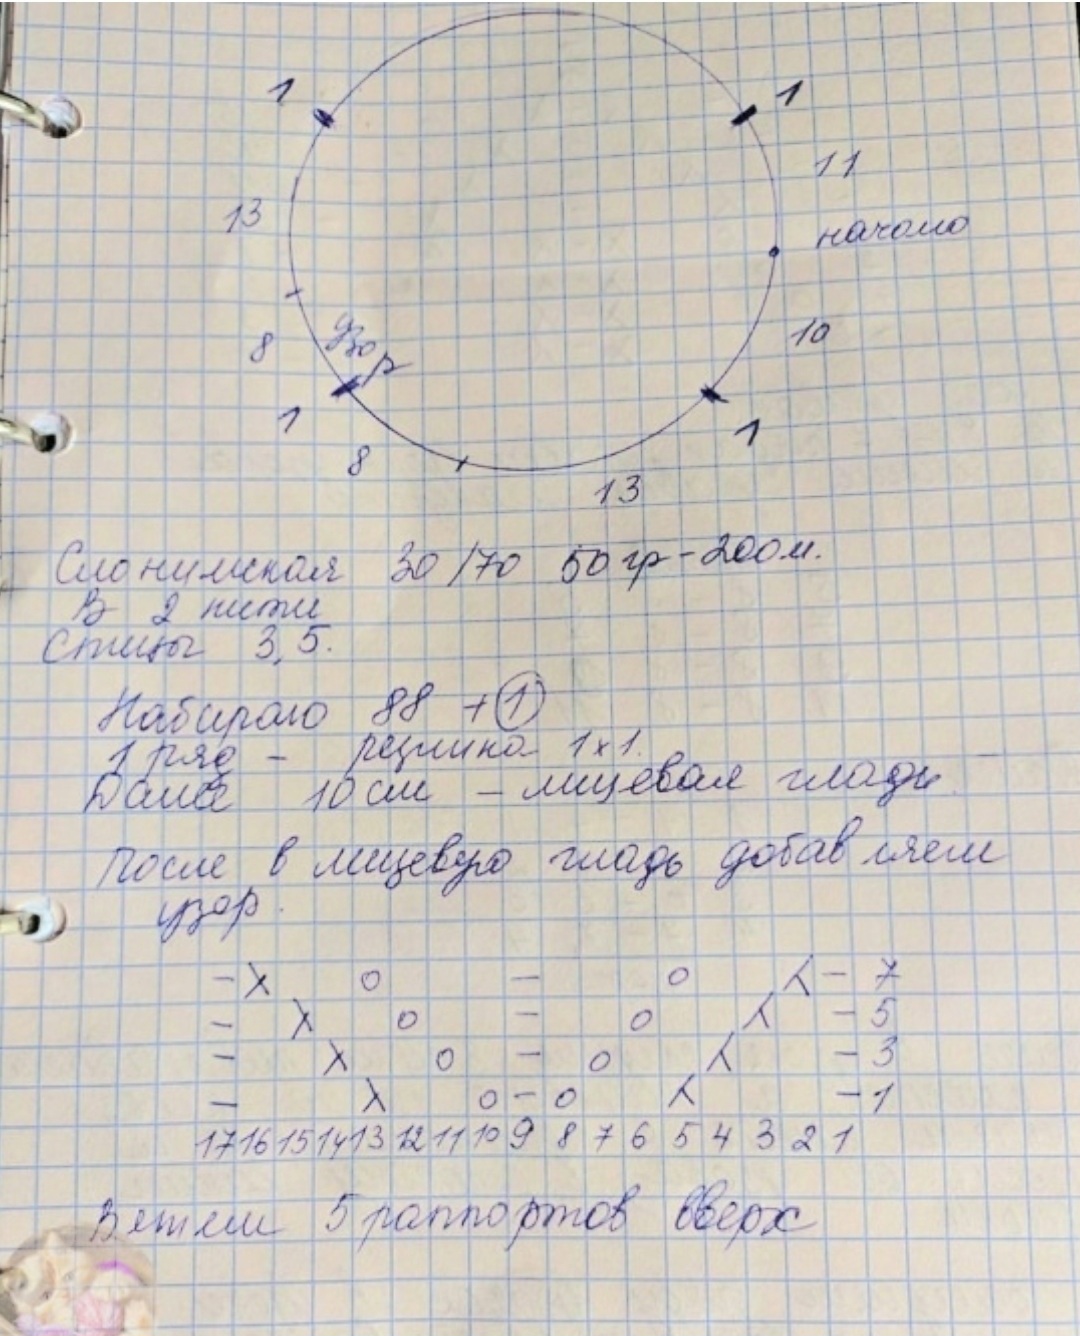 1 1
11
13 начало
10
узор
8
1 1
8
13
Слонимская 30/70 50гр-200м.
В 2 нити
Спицы 3,5.
Набираю 88 + 1
1 ряд - резинка 1х1.
Далее 10 см - лицевая гладь.
После в лицевую гладь добавляем
узор.
- λ o - o λ - 7
- λ o - o λ - 5
- λ o - o λ - 3
- λ o - o λ - 1
17 16 15 14 13 12 11 10 9 8 7 6 5 4 3 2 1
Вяжем 5 раппортов вверх